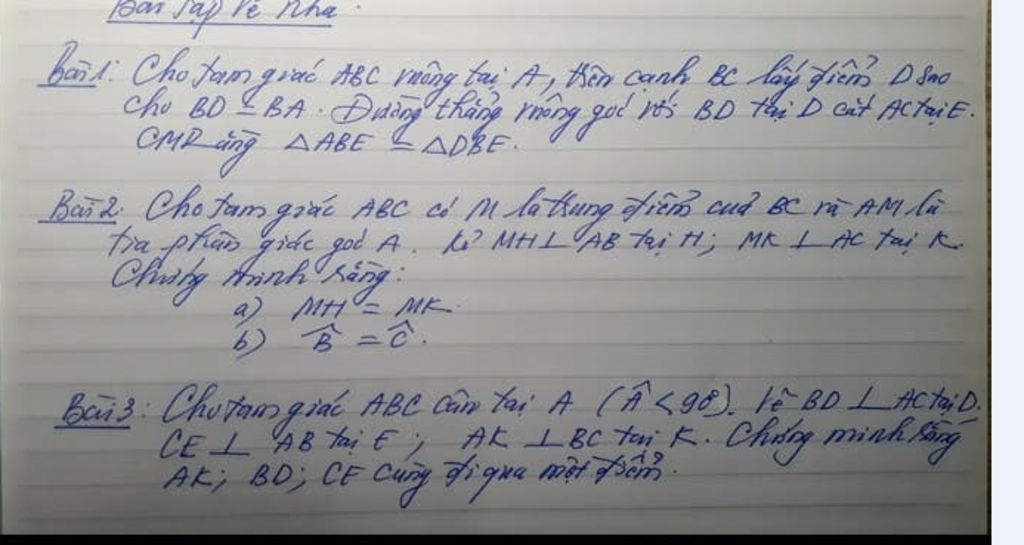 Bài tập về nhà
Bài 1: Cho tam giác ABC vuông tại A, trên cạnh BC lấy điểm D sao
cho BD = BA. Đường thẳng vuông góc với BD tại D cắt AC tại E.
CMRằng △ABE = △DBE.
Bài 2: Cho tam giác ABC có M là trung điểm của BC và AM là
tia phân giác góc A. Kẻ MH ⊥ AB tại H; MK ⊥ AC tại K.
Chứng minh rằng:
a) MH = MK.
b) B̂ = Ĉ.
Bài 3: Cho tam giác ABC cân tại A (Â < 90°). Vẽ BD ⊥ AC tại D.
CE ⊥ AB tại E; AK ⊥ BC tại K. Chứng minh rằng
AK; BD; CE cùng đi qua một điểm.